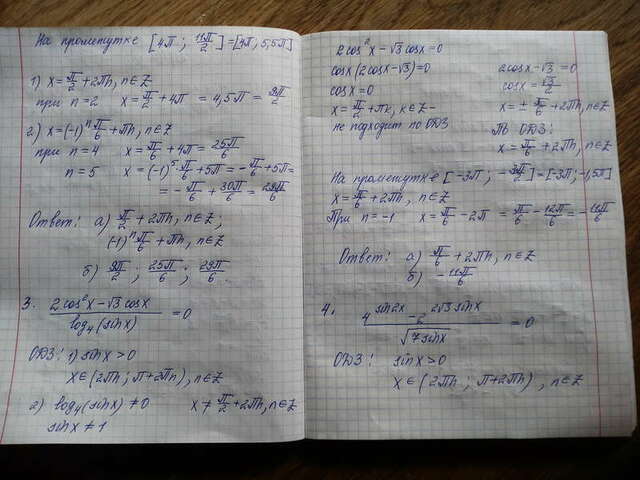 На промежутке [4π ; 11π/2] = [4π; 5,5π]
1) x = π/2 + 2πn, n∈Z
при n=2 x = π/2 + 4π = 4,5π = 9π/2
2) x = (-1)ⁿ π/6 + πn, n∈Z
при n=4 x = π/6 + 4π = 25π/6
n=5 x = (-1)⁵ π/6 + 5π = -π/6 + 5π =
= -π/6 + 30π/6 = 29π/6
Ответ: а) π/2 + 2πn, n∈Z,
(-1)ⁿ π/6 + πn, n∈Z
б) 9π/2 ; 25π/6 ; 29π/6.
3. (2cos²x - √3 cosx)/(log₄(sinx)) = 0
ОДЗ: 1) sinx > 0
x∈(2πn ; π+2πn), n∈Z
2) log₄(sinx) ≠ 0 x ≠ π/2 + 2πn, n∈Z
sinx ≠ 1
2cos²x - √3 cosx = 0
cosx(2cosx - √3) = 0 2cosx - √3 = 0
cosx = 0 cosx = √3/2
x = π/2 + πk, k∈Z - x = ± π/6 + 2πn, n∈Z
не подходит по ОДЗ По ОДЗ:
x = π/6 + 2πn, n∈Z
На промежутке [-3π ; -3π/2] = [-3π; -1,5π]
x = π/6 + 2πn, n∈Z
При n=-1 x = π/6 - 2π = π/6 - 12π/6 = -11π/6
Ответ: а) π/6 + 2πn, n∈Z
б) -11π/6
4. (4^(sin2x) - 2^(2√3 sinx))/√(7sinx) = 0
ОДЗ: sinx > 0
x∈(2πn ; π+2πn), n∈Z